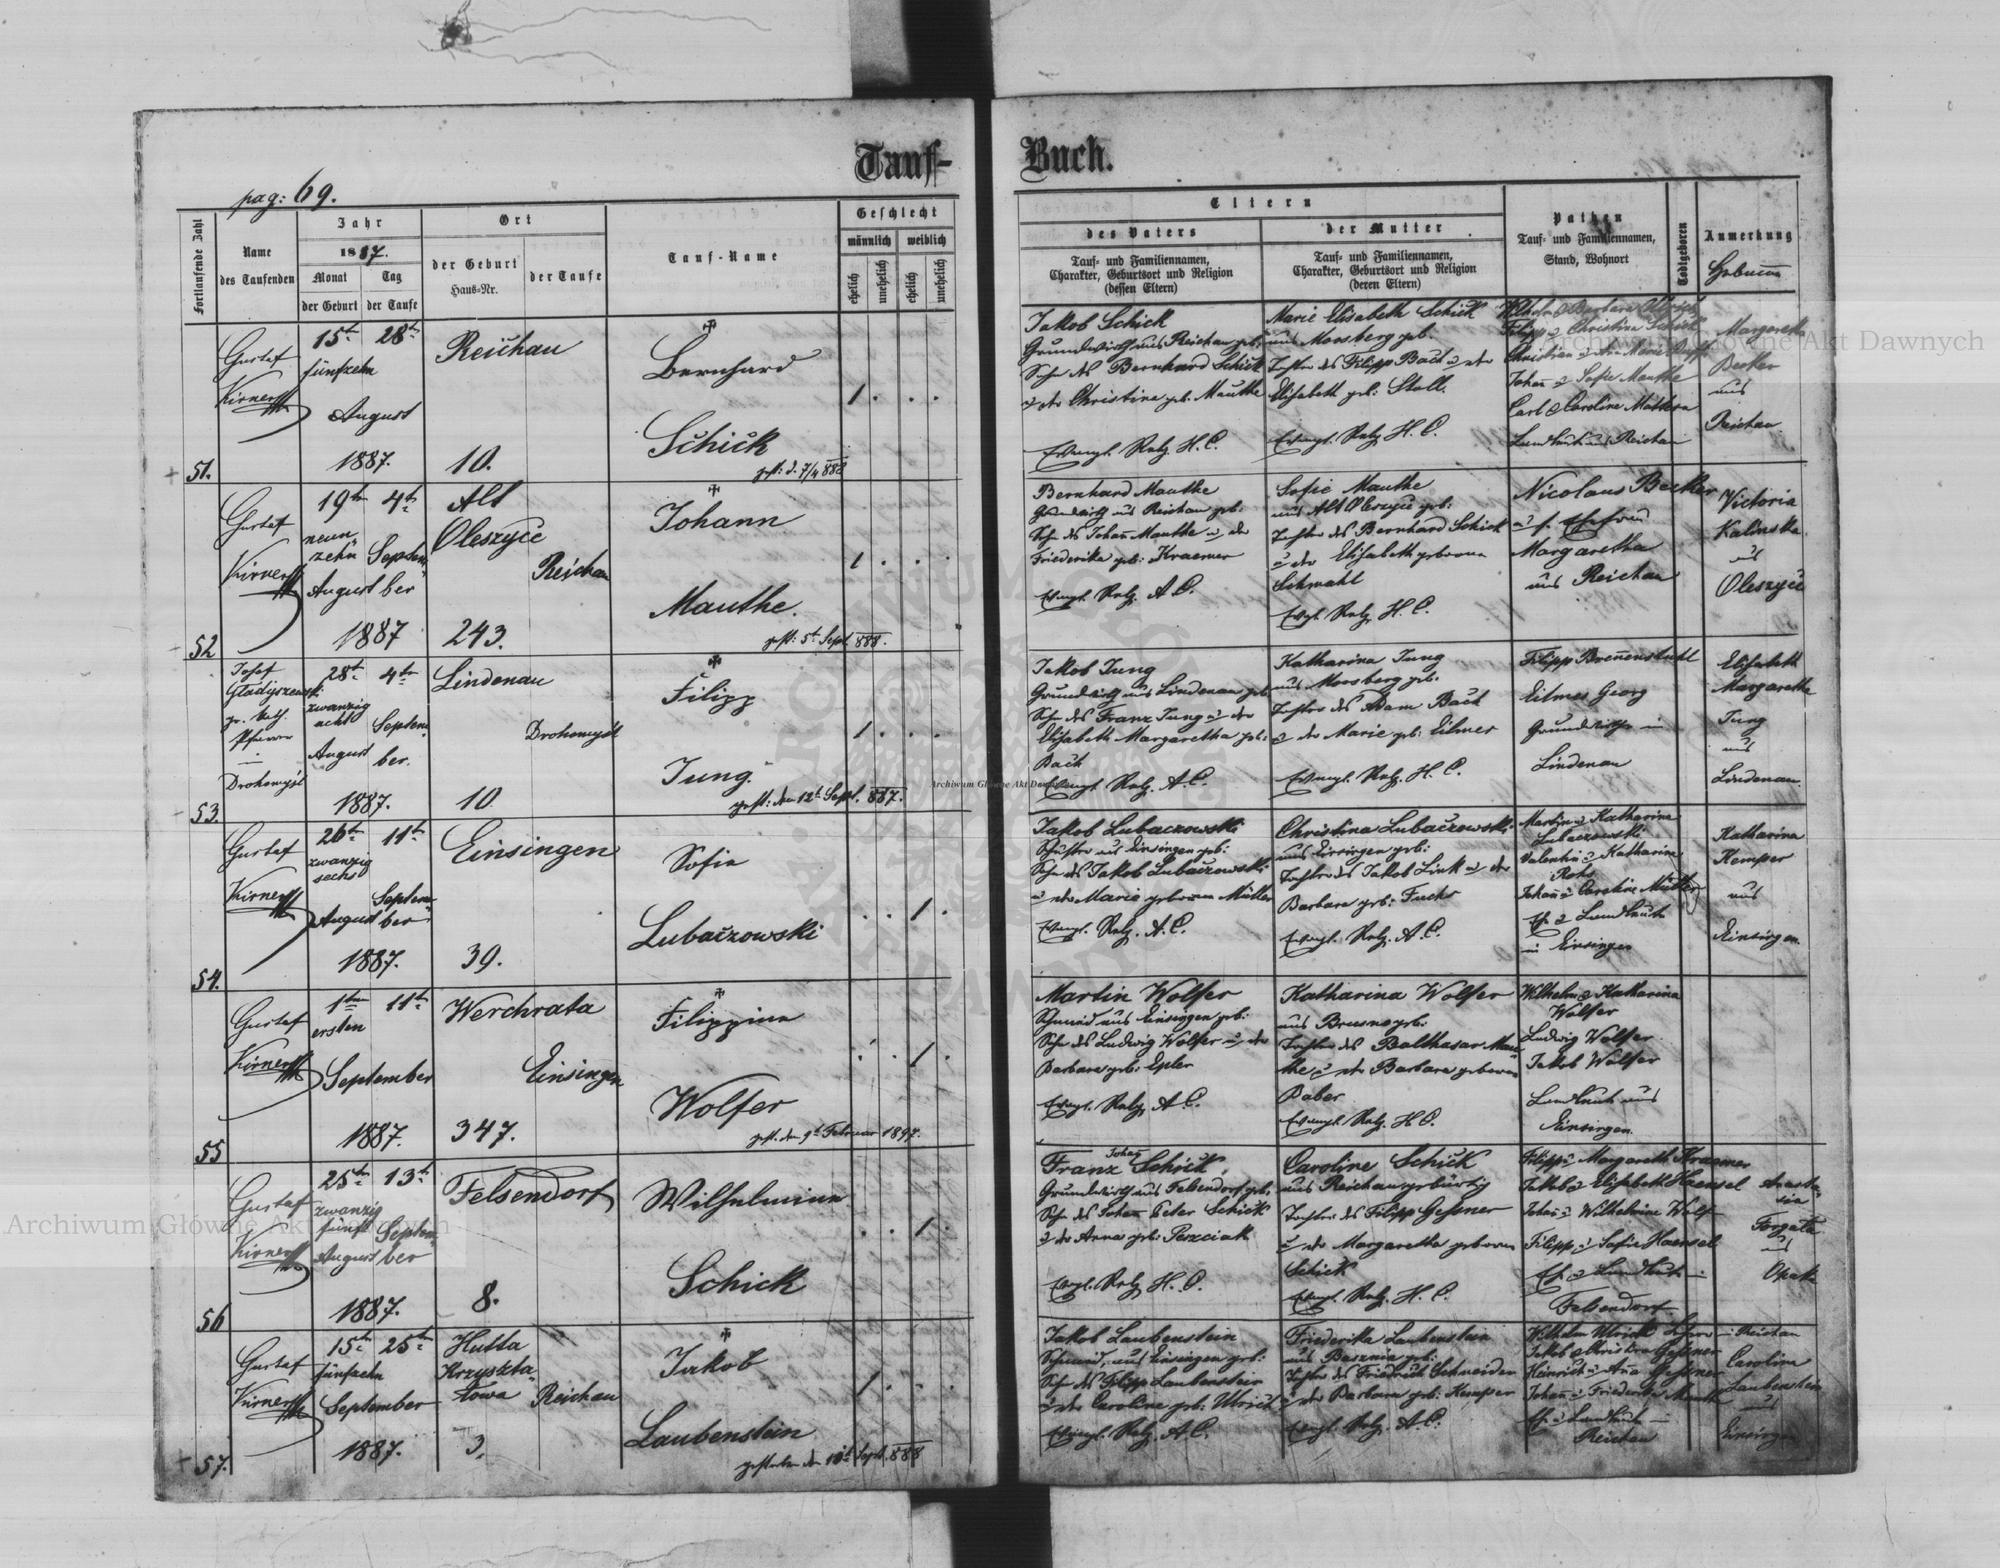 Tauf-
Buch.
pag: 69.
Fortlaufende Zahl
Name
des Taufenden
Jahr
1887.
Monat
der Geburt
Tag
der Taufe
Ort
der Geburt
Haus-Nr.
der Taufe
Tauf-Name
Geschlecht
männlich
weiblich
ehelich
unehelich
ehelich
unehelich
Eltern
des Vaters
Tauf- und Familiennamen,
Charakter, Geburtsort und Religion
(dessen Eltern)
der Mutter
Tauf- und Familiennamen,
Charakter, Geburtsort und Religion
(deren Eltern)
Pathen
Tauf- und Familiennamen,
Stand, Wohnort
Todtgeboren
Anmerkung
51.
Gustaf
15t 28t
fünfzehn
August
1887.
Reichau
10.
Bernhard
Schick
1
Jakob Schick
Grundwirth aus Reichau geb:
Sohn des Bernhard Schick
u der Christine geb. Mauthe
Evangl. Relg. H. C.
Marie Elisabeth Schick
aus Moosberg geb.
Tochter des Filipp Bach u der
Elisabeth geb: Stoll.
Evangl. Relg. H. C.
Filipp u Christina Schick
Johan u Sofie Mauthe
Reichau
Margaretha
Becker
aus
Reichau
52
Gustaf
19t 4t
neun
zehn Septem
August ber
1887
Alt
Oleszyce
Reichau
243.
Johann
Mauthe.
gest: 5t Sept. 888.
1
Bernhard Mauthe
Grundwirth aus Reichau geb:
Sohn des Johan Mauthe u der
Friederike geb: Kraemer
Evangl. Relg. A. C.
Sofie Mauthe
aus Alt Oleszyce geb:
Tochter des Bernhard Schick
u der Elisabeth geborene
Schmahl
Evgl. Relg. H. C.
Nicolaus Becker
u s. Ehefrau
Margaretha
aus Reichau
Victoria
Kalinska
aus
Oleszyce
53.
Josef
Gladyszewski
gr. kath.
Pfarrer
Drohomysl
28t 4t
zwanzig
acht Septem
August ber.
1887.
Lindenau
Drohomysl
10
Filipp
Jung.
gest: den 12t Sept. 887.
1
Jakob Jung
Grundwirth aus Lindenau geb
Sohn des Franz Jung u der
Elisabeth Margaretha geb:
Bach
Evangl. Relg. A. C.
Katharina Jung
aus Moosberg geb:
Tochter des Adam Bach
u der Marie geb: Eilmes
Evangl. Relg. H. C.
Filipp Breñenstuhl
Eilmes Georg
Grundwirthe in
Lindenau
Elisabeth
Margaretha
Jung
aus
Lindenau.
54.
Gustaf
26t 11t
zwanzig
sechs
Septem
August ber
1887.
Einsingen
39.
Sofie
Lubaczowski
1
Jakob Lubaczowski
Schuster aus Einsingen geb:
Sohn des Jakob Lubaczowski
u der Marie geborene Müller
Evangl. Relg. A. C.
Christina Lubaczowski
aus Einsingen geb:
Tochter des Jakob Link u der
Barbara geb: Fuchs
Evangl. Relg. A. C.
Martin u Katharina
Lubaczowski
Valentin u Katharina
Johan u Caroline Müller
in Einsingen
Katharina
Kemper
aus
Einsingen.
55
Gustaf
1ten 11t
ersten
September
1887.
Werchrata
Einsingen
347.
Filippine
Wolfer
gest. den 9t Februar 1897.
1
Martin Wolfer
Schmied aus Einsingen geb:
Sohn des Ludwig Wolfer u der
Barbara geb: Epler
Evangl. Relg. A. C.
Katharina Wolfer
aus Brusno geb:
Tochter des Balthasar Mau
the u der Barbara geborene
Daber
Evangl. Relg. H. C.
Wilhelm u Katharina
Wolfer
Ludwig Wolfer
Jakob Wolfer
Landleute aus
Einsingen.
56
Gustaf
25t 13t
zwanzig
fünf Septem
August ber
1887.
Felsendorf
8.
Wilhelmine
Schick
1
Johan
Franz Schick
Grundwirth aus Felsendorf geb.
Sohn des Johan Peter Schick
u der Anna geb: Peszciak
Evgl. Relg. H. C.
Caroline Schick
aus Reichau gebürtig
Tochter des Filipp Gessner
u der Margaretha geborene
Schick
Evangl. Relg. H. C.
Filipp u Margareth Kraemer
Jakob u Elisabeth Haensel
Johan u Wilhelmine Wolf
Filipp u Sofie Haensel
Felsendorf
57.
Gustaf
15t 25t
fünfzehn
September
1887.
Hutta
Kryszta
towa Reichau
3.
Jakob
Laubenstein
gestorben den 10t Sept. 888
1
Jakob Laubenstein
Schmied, aus Einsingen geb:
Sohn des Filipp Laubenstein
u der Caroline geb: Ulrich
Evangl. Relg. A. C.
Friederika Laubenstein
aus Basznia geb:
Tochter des Friedrich Schneider
u der Barbara geb: Kemper
Evangl. Relg. A. C.
Wilhelm Ulrich
Jakob u Christina Gessner
Heinrich u Anna Gessner
Johan u Friederika Mauthe
Reichau
Carolina
Laubenstein
aus
Einsingen
Archiwum Główne Akt Dawnych
Archiwum Główne Akt Dawnych
Archiwum Główne Akt Dawnych